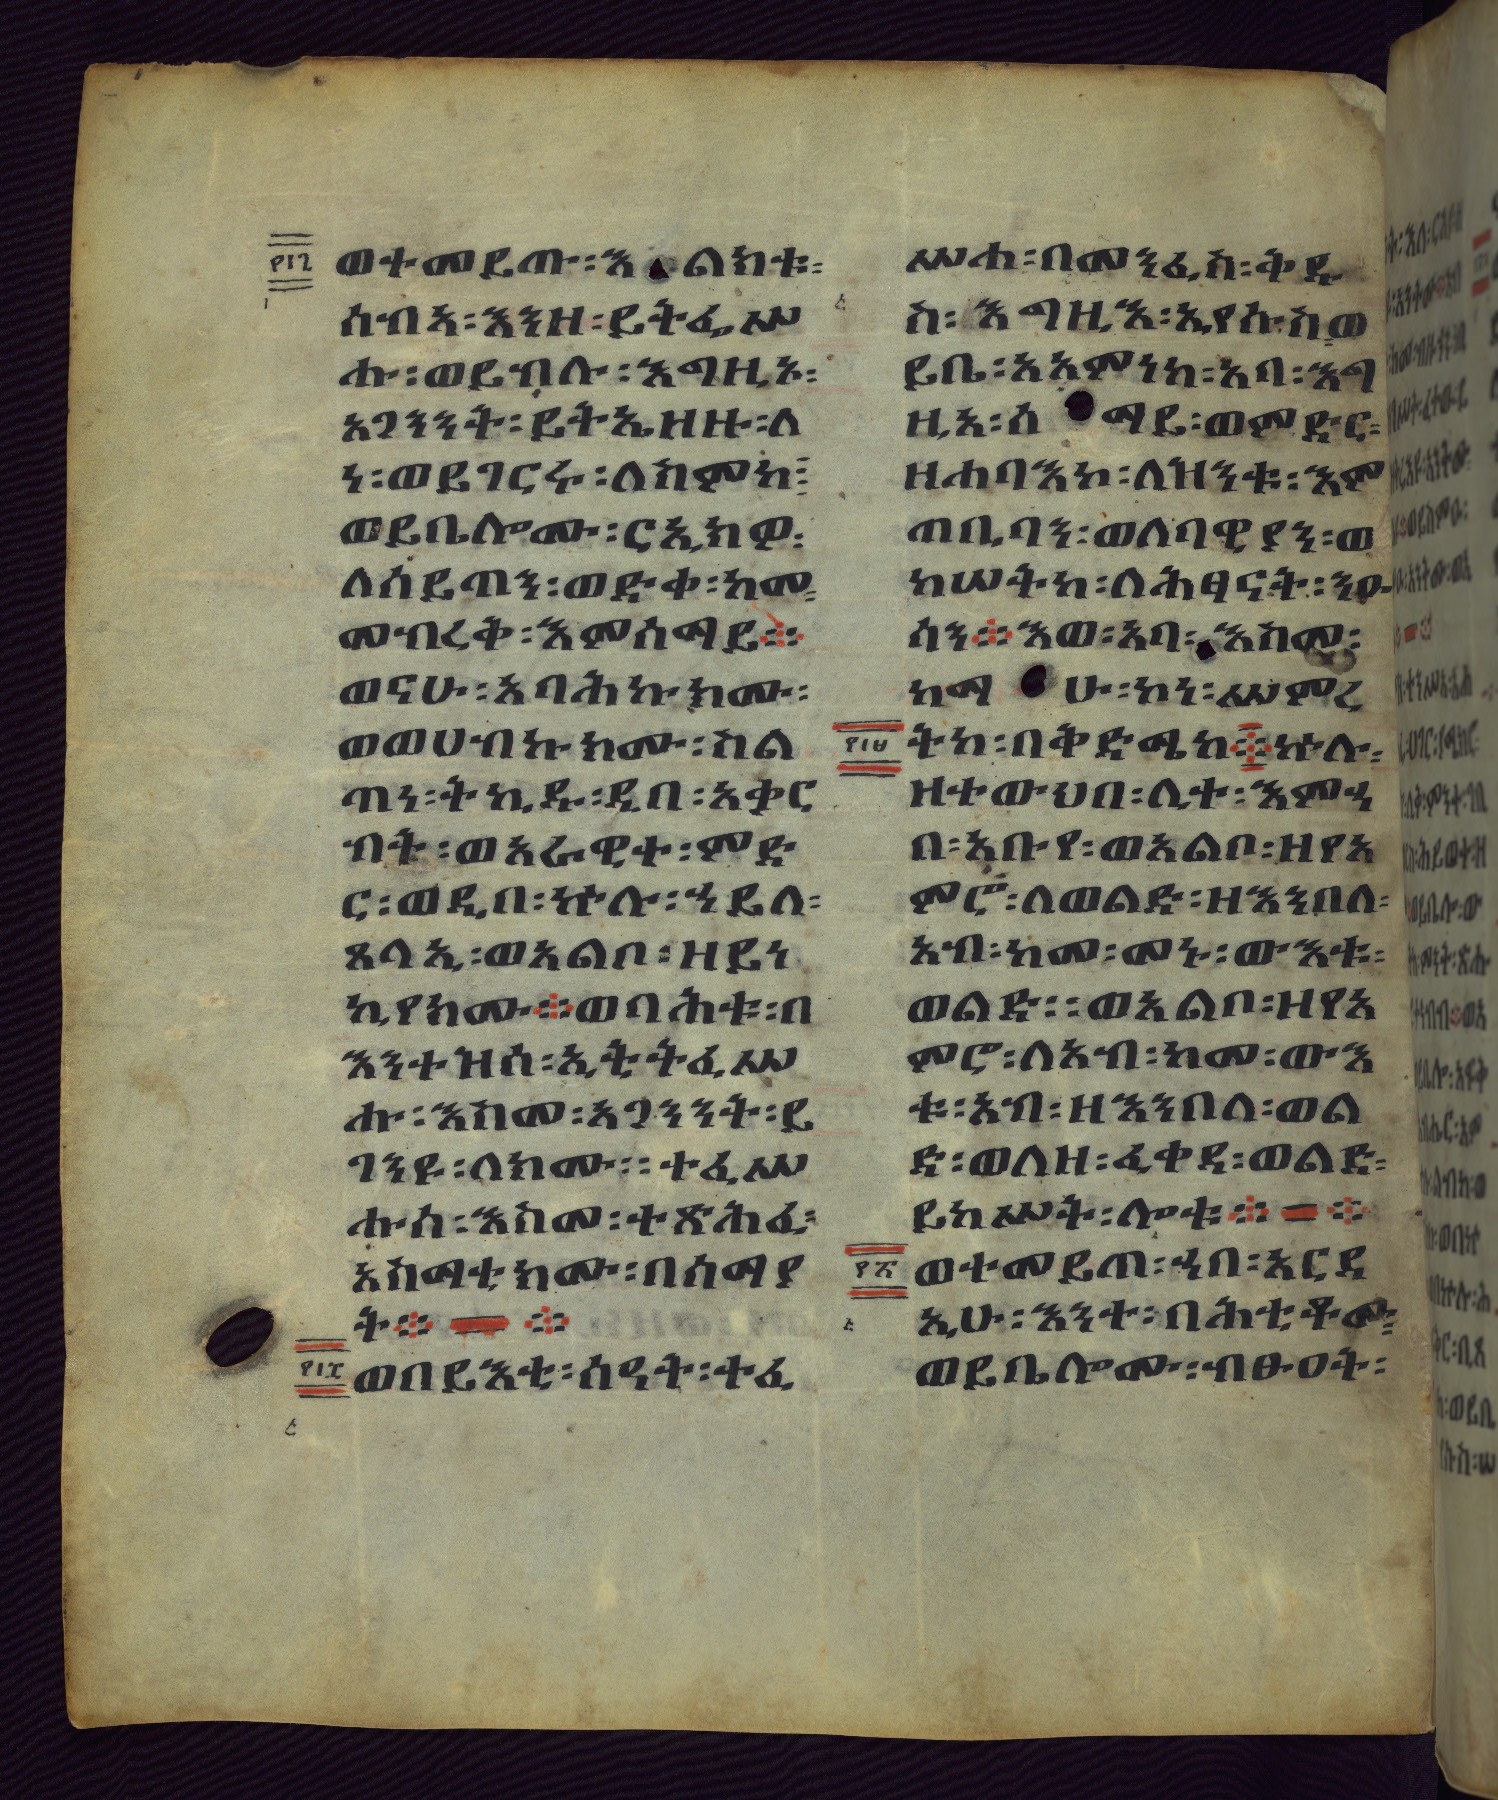 ፻፲፯
ወተመይጡ፡እልክቱ፡
ሰብአ፡እንዘ፡ይትፌሥ
ሑ፡ወይብሉ፡እግዚኦ፡
አጋንንት፡ይትኤዘዙ፡ለ
ነ፡ወይገርሩ፡ለስምከ፡
ወይቤሎሙ፡ርኢክዎ፡
ለሰይጣን፡ወድቀ፡ከመ፡
መብረቅ፡እምሰማይ፨
ወናሁ፡አባሕኩክሙ፡
ወወሀብኩክሙ፡ስል
ጣነ፡ትኪዱ፡ዲበ፡አቃር
ብት፡ወአራዊተ፡ምድ
ር፡ወዲበ፡ኵሉ፡ኃይለ፡
ጸላኢ፡ወአልቦ፡ዘይነ
ኪየክሙ፨ወባሕቱ፡በ
እንተዝሰ፡ኢትትፌሥ
ሑ፡እስመ፡አጋንንት፡ይ
ገንዩ፡ለክሙ፡፡ተፈሥ
ሑሰ፡እስመ፡ተጽሕፈ፡
አስማቲክሙ፡በሰማያ
ት፨
፻፲፰
ወበይእቲ፡ሰዓት፡ተፈ
ሥሐ፡በመንፈስ፡ቅዱ
ስ፡እግዚእ፡ኢየሱስ፡ወ
ይቤ፡አአምነከ፡አባ፡እግ
ዚአ፡ሰማይ፡ወምድር፡
ዘሐባእኮ፡ለዝንቱ፡እም
ጠቢባን፡ወለባዊያን፡ወ
ከሠትከ፡ለሕፃናት፡ንዑ
ሳን፨እወ፡አባ፡እስመ፡
ከማሁ፡ኮነ፡ሥምረ
፻፲፱
ትከ፡በቅድሜከ፨ኵሉ፡
ዘተውህበ፡ሊተ፡እምኃ
በ፡አቡየ፡ወአልቦ፡ዘየአ
ምሮ፡ለወልድ፡ዘእንበለ፡
አብ፡ከመ፡መኑ፡ውእቱ፡
ወልድ፡፡ወአልቦ፡ዘየአ
ምሮ፡ለአብ፡ከመ፡ውእ
ቱ፡አብ፡ዘእንበለ፡ወል
ድ፡ወለዘ፡ፈቀደ፡ወልድ፡
ይከሥት፡ሎቱ፨
፻፳
ወተመይጠ፡ኃበ፡አርዳ
ኢሁ፡እንተ፡ባሕቲቶሙ፡
ወይቤሎሙ፡ብፁዐት፡